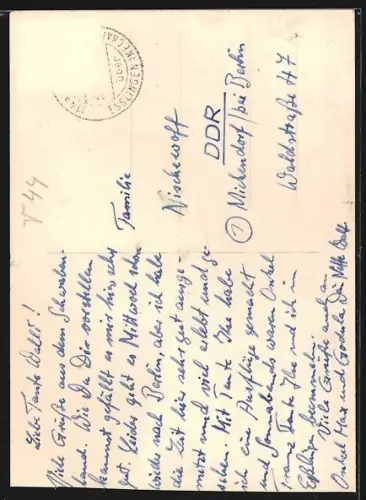 Liebe Tante Walet!
Viele Grüße aus dem Schwaben-
land. Wie Du Dir vorstellen
kannst gefällt es mir hier sehr
gut. Leider geht es Mittwoch schon
wieder nach Berlin, aber ich habe
die Zeit hier sehr gut ausge-
nutzt und viel erlebt und ge-
sehen. Mit Tante Ilse habe
ich eine Ausflüge gemacht
und Sonnabends waren Onkel
Franz Tante Ilse und ich in
Eßlingen
Viele Grüße auch an
Onkel Max und
V 44
ESSLINGEN (NECKAR)
Familie
Nischewoff
DDR
Michendorf/bei Berlin
Waldstraße 47